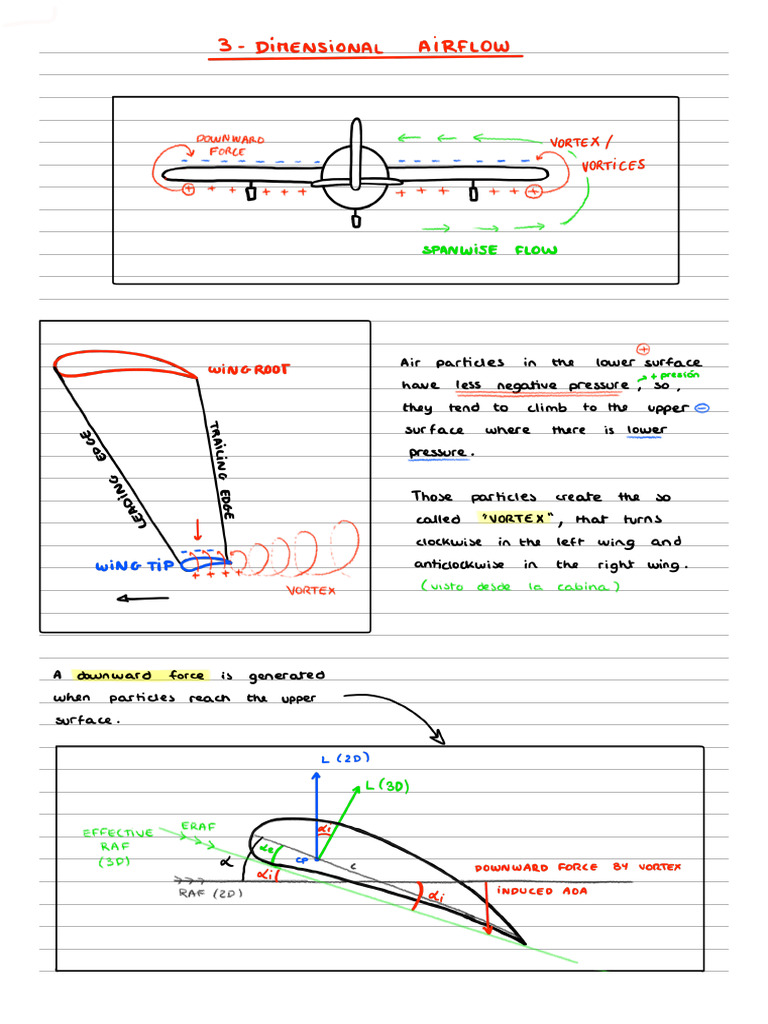 3 - DIMENSIONAL AIRFLOW
DOWNWARD
FORCE
VORTEX /
VORTICES
SPANWISE FLOW
WING ROOT
LEADING EDGE
TRAILING EDGE
WING TIP
VORTEX
Air particles in the lower surface
+ presión
have less negative pressure, so,
they tend to climb to the upper
surface where there is lower
pressure.
Those particles create the so
called "VORTEX", that turns
clockwise in the left wing and
anticlockwise in the right wing.
(visto desde la cabina)
A downward force is generated
when particles reach the upper
surface.
L (2D)
L (3D)
EFFECTIVE
RAF
(3D)
ERAF
αi
αe
CP
C
α
αi
αi
RAF (2D)
DOWNWARD FORCE BY VORTEX
INDUCED AOA